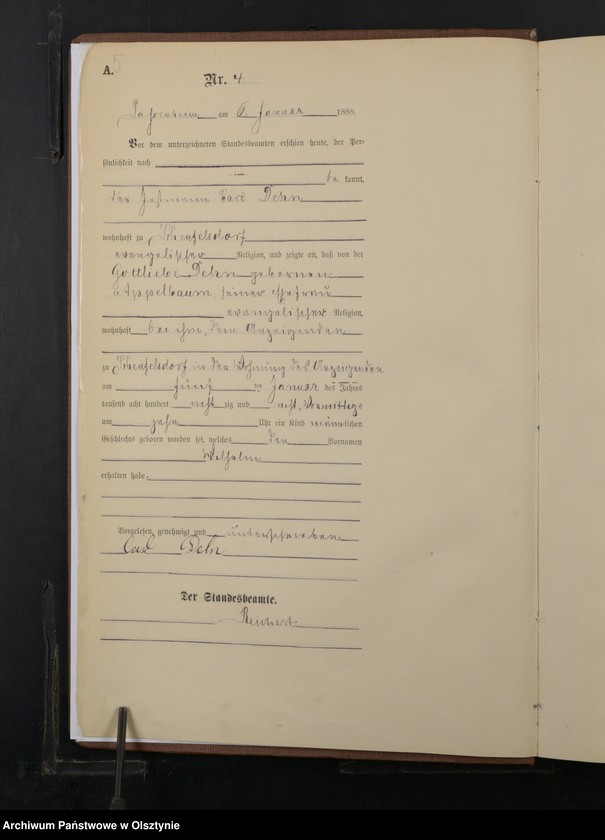 A. 5
Nr. 4
am 6. Januar 1888.
Vor dem unterzeichneten Standesbeamten erschien heute, der Per-
sönlichkeit nach
be kannt,
der Carl Dehn
wohnhaft zu Scheufelsdorf
evangelischer Religion, und zeigte an, daß von der
Gottliebe Dehn gebornen
Appelbaum, seiner Ehefrau
evangelischer Religion,
wohnhaft bei ihm, dem Anzeigenden
zu Scheufelsdorf in der Wohnung des Anzeigenden
am fünf ten Januar des Jahres
tausend acht hundert acht zig und acht, Vormittags
um zehn Uhr ein Kind männlichen
Geschlechts geboren worden sei, welches den Vornamen
Wilhelm
erhalten habe.
Vorgelesen, genehmigt und unterschrieben
Carl Dehn
Der Standesbeamte.
Reichert
Archiwum Państwowe w Olsztynie